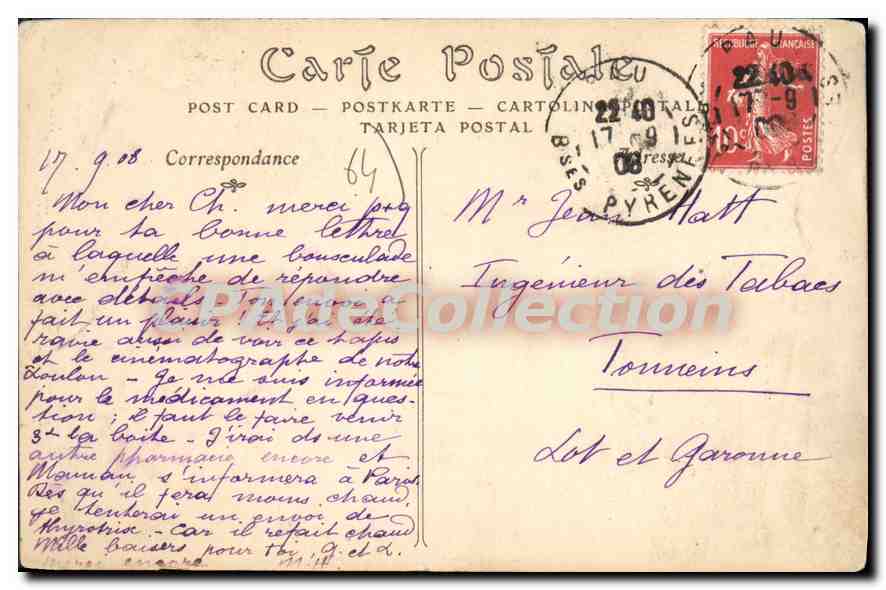 Carte Postale
POST CARD — POSTKARTE — CARTOLINA POSTALE
TARJETA POSTAL
RÉPUBLIQUE FRANÇAISE
10c
POSTES
PAU
22 40
17 -9
08
BSES PYRENEES
PAU
22 40
17 -9
08
17.9.08
Correspondance
Adresse
64
Mon cher Ch. merci
pour ta bonne lettre
à laquelle une bousculade
m'empêche de répondre
avec détails. Ton envoi a
fait un plaisir! Et j'ai été
ravie aussi de voir ce tapis
et le cinématographe de notre
Loulou – Je me suis informée
pour le médicament en ques-
tion ; il faut le faire venir
3f la boite – J'irai ds une
autre pharmacie encore et
Maman s'informera à Paris.
Dès qu'il fera moins chaud
je tenterai un envoi de
– car il refait chaud
Mille baisers pour toi, G. et L.
merci encore M.H.
Mr Jean Hatt
Ingénieur des Tabacs
Tonneins
Lot et Garonne
CPAdeCollection